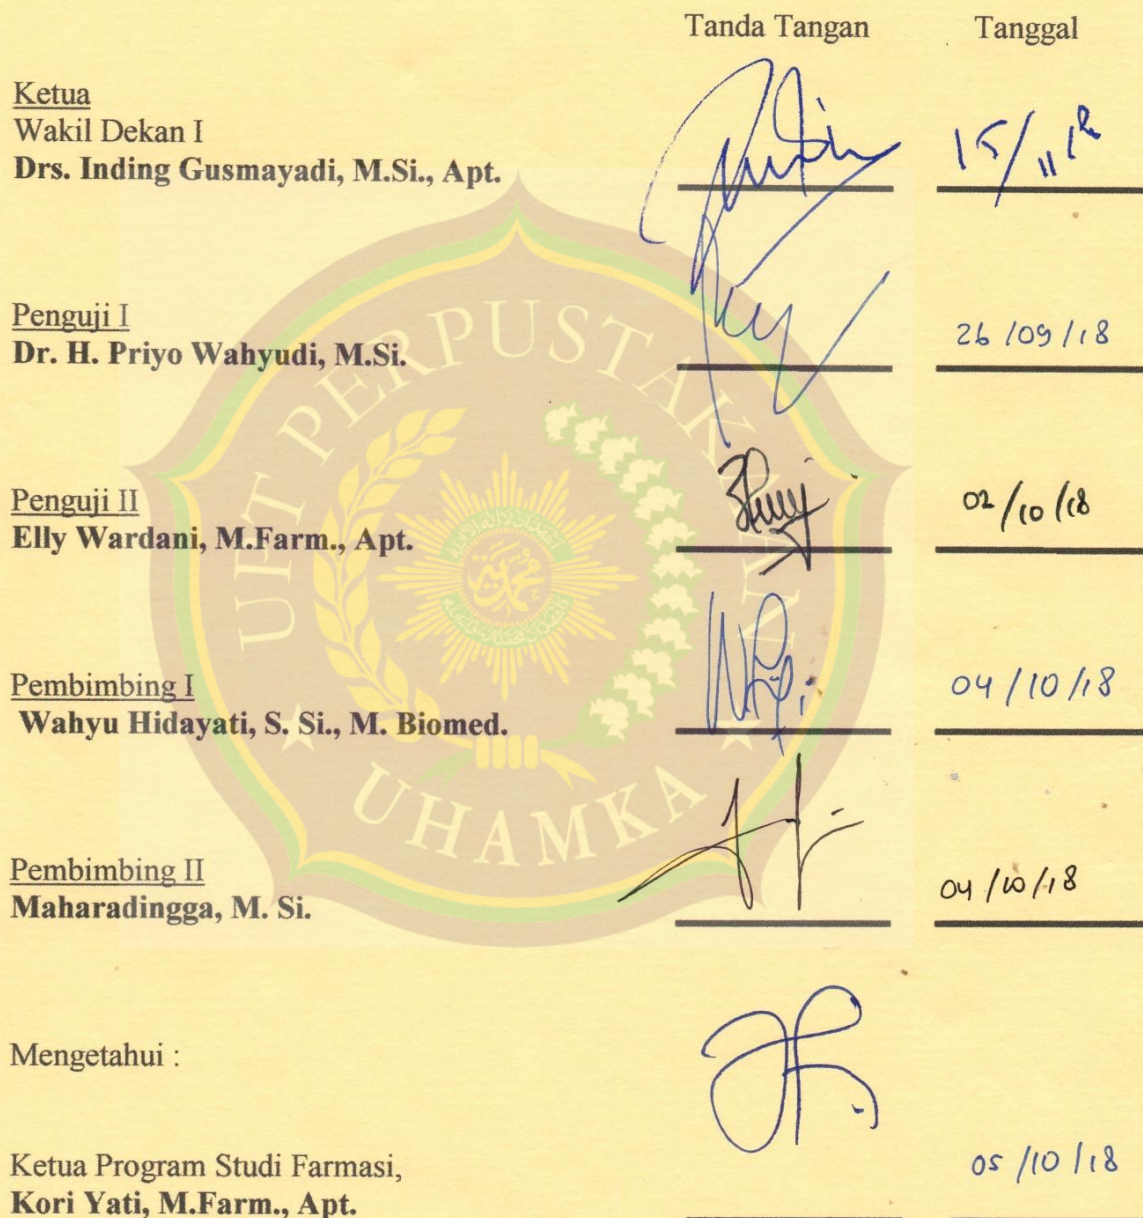 Tanda Tangan Tanggal
Ketua
Wakil Dekan I
Drs. Inding Gusmayadi, M.Si., Apt. 15/11/18
Penguji I
Dr. H. Priyo Wahyudi, M.Si. 26/09/18
Penguji II
Elly Wardani, M.Farm., Apt. 02/10/18
Pembimbing I
Wahyu Hidayati, S. Si., M. Biomed. 04/10/18
Pembimbing II
Maharadingga, M. Si. 04/10/18
Mengetahui :
Ketua Program Studi Farmasi, 05/10/18
Kori Yati, M.Farm., Apt.
UPT PERPUSTAKAAN
UHAMKA